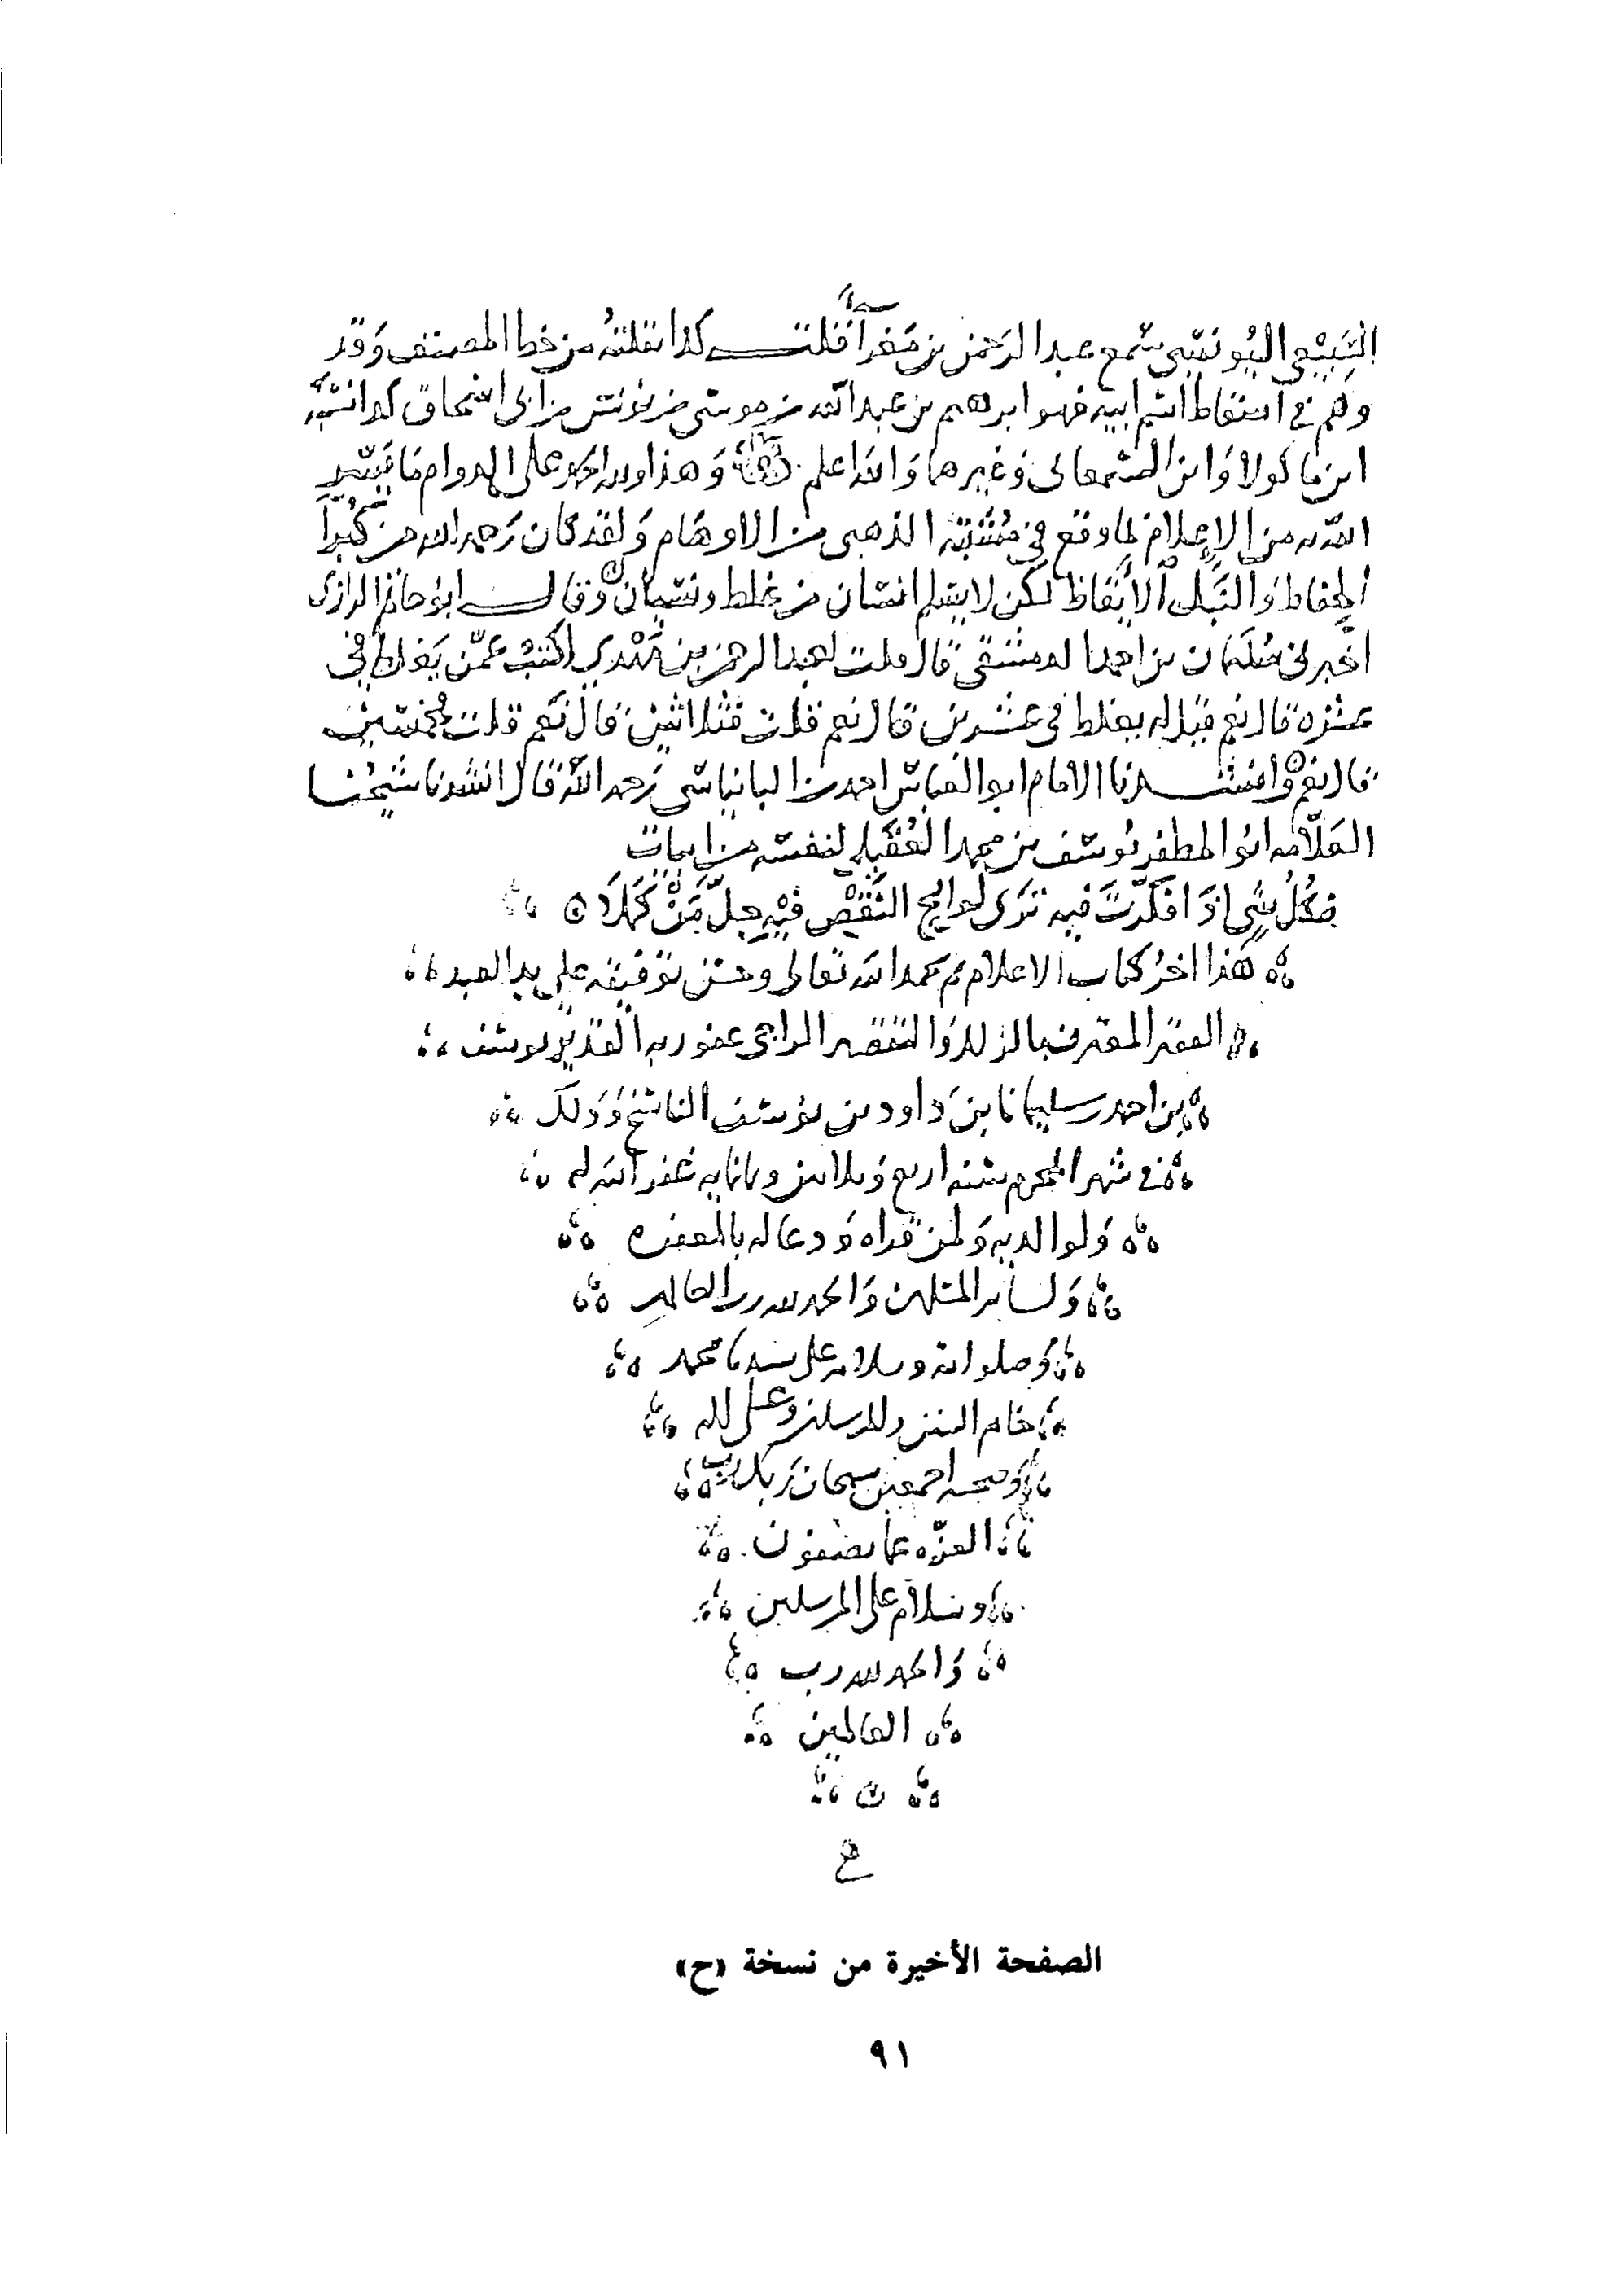 السبيعي اليونسي سمع عبد الرحمن بن مغرا قلت كذا نقلته من خط المصنف وقد
وهم في اسقاط اسم ابيه فهو ابرهيم بن عبد الله بن موسى بن يونس بن ابي اسحاق كذا نسبه
ابن ماكولا وابن السمعاني وغيرهما والله اعلم وهذا ولله الحمد على الدوام ما يسر
الله من الاعلام لما وقع في مشتبه الذهبي من الاوهام ولقد كان رحمه الله من كبرآ
الحفاظ والنبلآ الايقاظ لكن لا يسلم انسان من غلط ونسيان وقال ابو حاتم الرازي
اخبرني سليمان بن احمد الدمشقي قال قلت لعبد الرحمن بن مهدي اكتب عمن يغلط في
عشرة قال نعم قيل له يغلط في عشرين قال نعم قلت فثلاثين قال نعم قلت فخمسين
قال نعم وانشدنا الامام ابو العباس احمد بن البانياسي رحمه الله قال انشدنا شيخنا
العلامه ابو المظفر يوسف بن محمد العقيلي لنفسه من ابيات
فكل شي اذا فكرت فيه ترى لوايح النقص فيه جل من كملا
هذا اخر كتاب الاعلام تم بحمد الله تعالى وحسن توفيقه على يد العبد
الفقير المعترف بالزلل والتقصير الراجي عفو ربه القدير يوسف
بن احمد سليمان بن داود بن يوسف الناسخ وذلك
في شهر المحرم سنه اربع وثلاثين وثمانمايه غفر الله له
ولوالديه ولمن قراه ودعا له بالمغفره
ولسائر المسلمين والحمد لله رب العالمين
وصلوات الله وسلامه على سيدنا محمد
خاتم النبيين والمرسلين وعلى اله
وصحبه اجمعين سبحان ربك رب
العزه عما يصفون
وسلام على المرسلين
والحمد لله رب
العالمين
الصفحة الأخيرة من نسخة (ح)
٩١